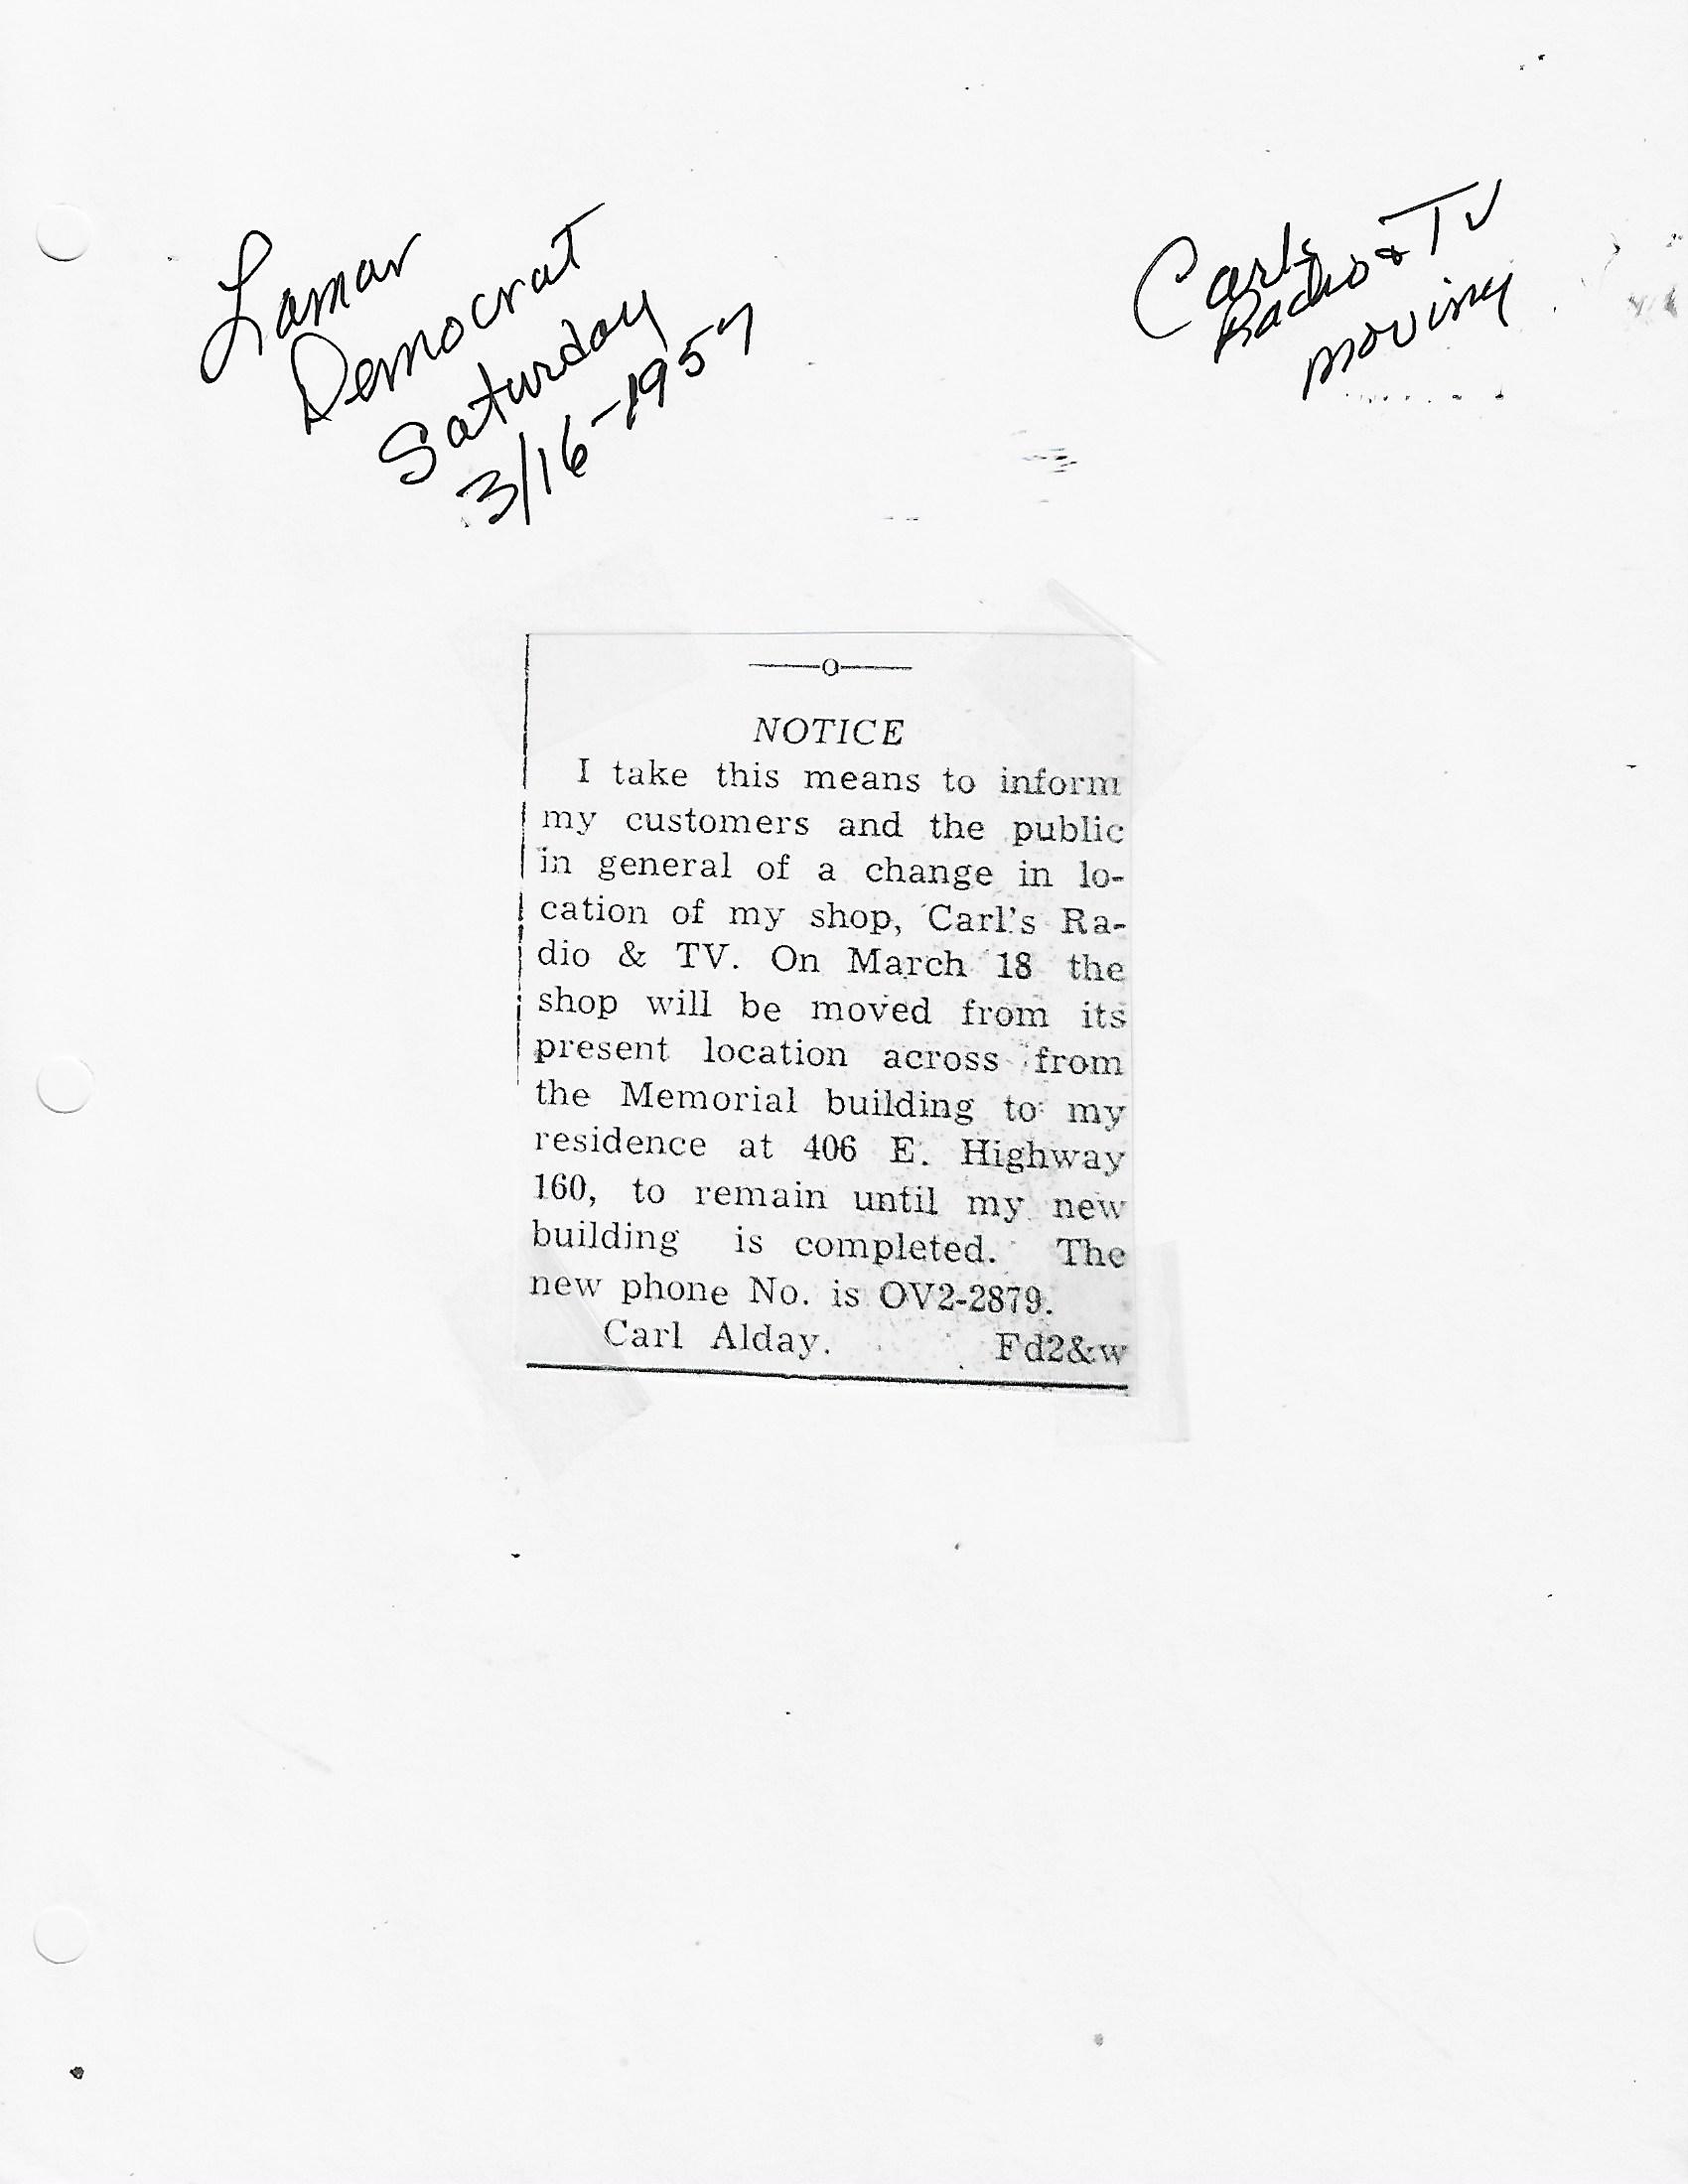 Lamar
Democrat
Saturday
3/16-1957
Carls
Radio & TV
moving
NOTICE
I take this means to inform
my customers and the public
in general of a change in lo-
cation of my shop, Carl's Ra-
dio & TV. On March 18 the
shop will be moved from its
present location across from
the Memorial building to my
residence at 406 E. Highway
160, to remain until my new
building is completed. The
new phone No. is OV2-2879.
Carl Alday. Fd2&w